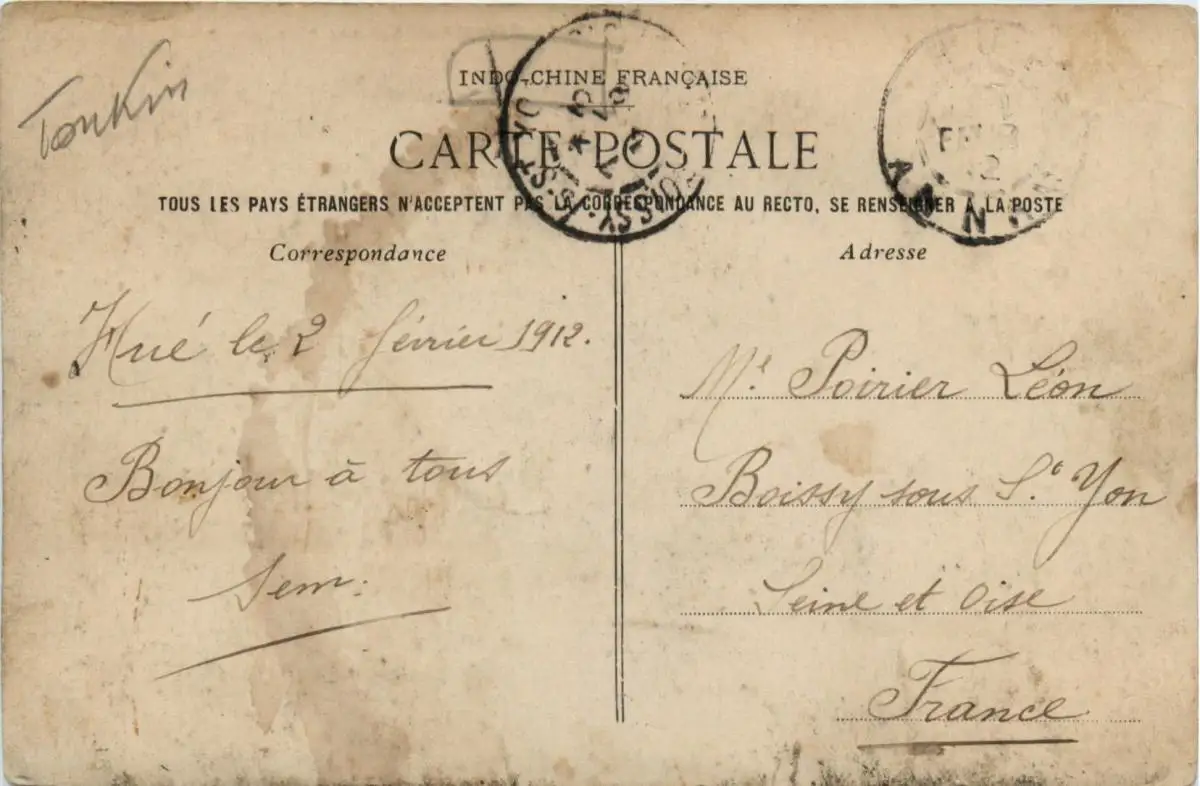 Tonkin
INDO-CHINE FRANÇAISE
CARTE POSTALE
TOUS LES PAYS ÉTRANGERS N'ACCEPTENT PAS LA CORRESPONDANCE AU RECTO, SE RENSEIGNER A LA POSTE
Correspondance
Hué le 2 février 1912.
Bonjour à tous
Sem.
Adresse
Mr. Poirier Léon
Boissy sous St Yon
Seine et Oise
France